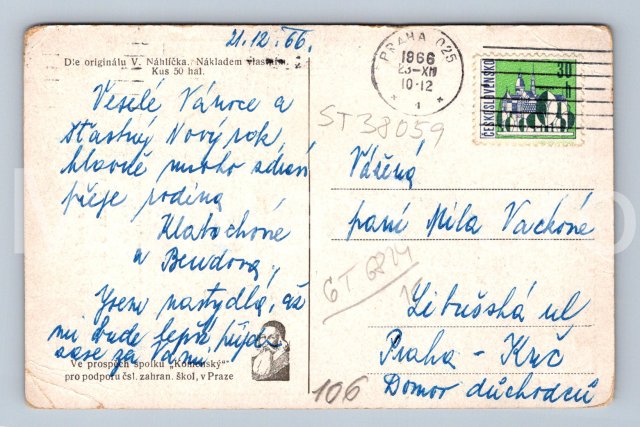 21.12.66.
Dle originálu V. Náhlíčka. Nákladem vlastním.
Kus 50 hal.
Veselé Vánoce a
šťastný Nový rok,
hlavně mnoho zdraví
přeje rodina
Klabochové
a Bendova,
Jsem nastydlá, až
mi bude lepší, přijdu
zase za Vámi
Ve prospěch spolku „Komenský“
pro podporu čsl. zahran. škol, v Praze
PRAHA 025
1966
23-XII
10-12
1
ČESKOSLOVENSKO
30 h
ST38059
Vážená
paní Mila Vacková
GT 6874
Libušská ul
Praha - Krč
Domov důchodců
106